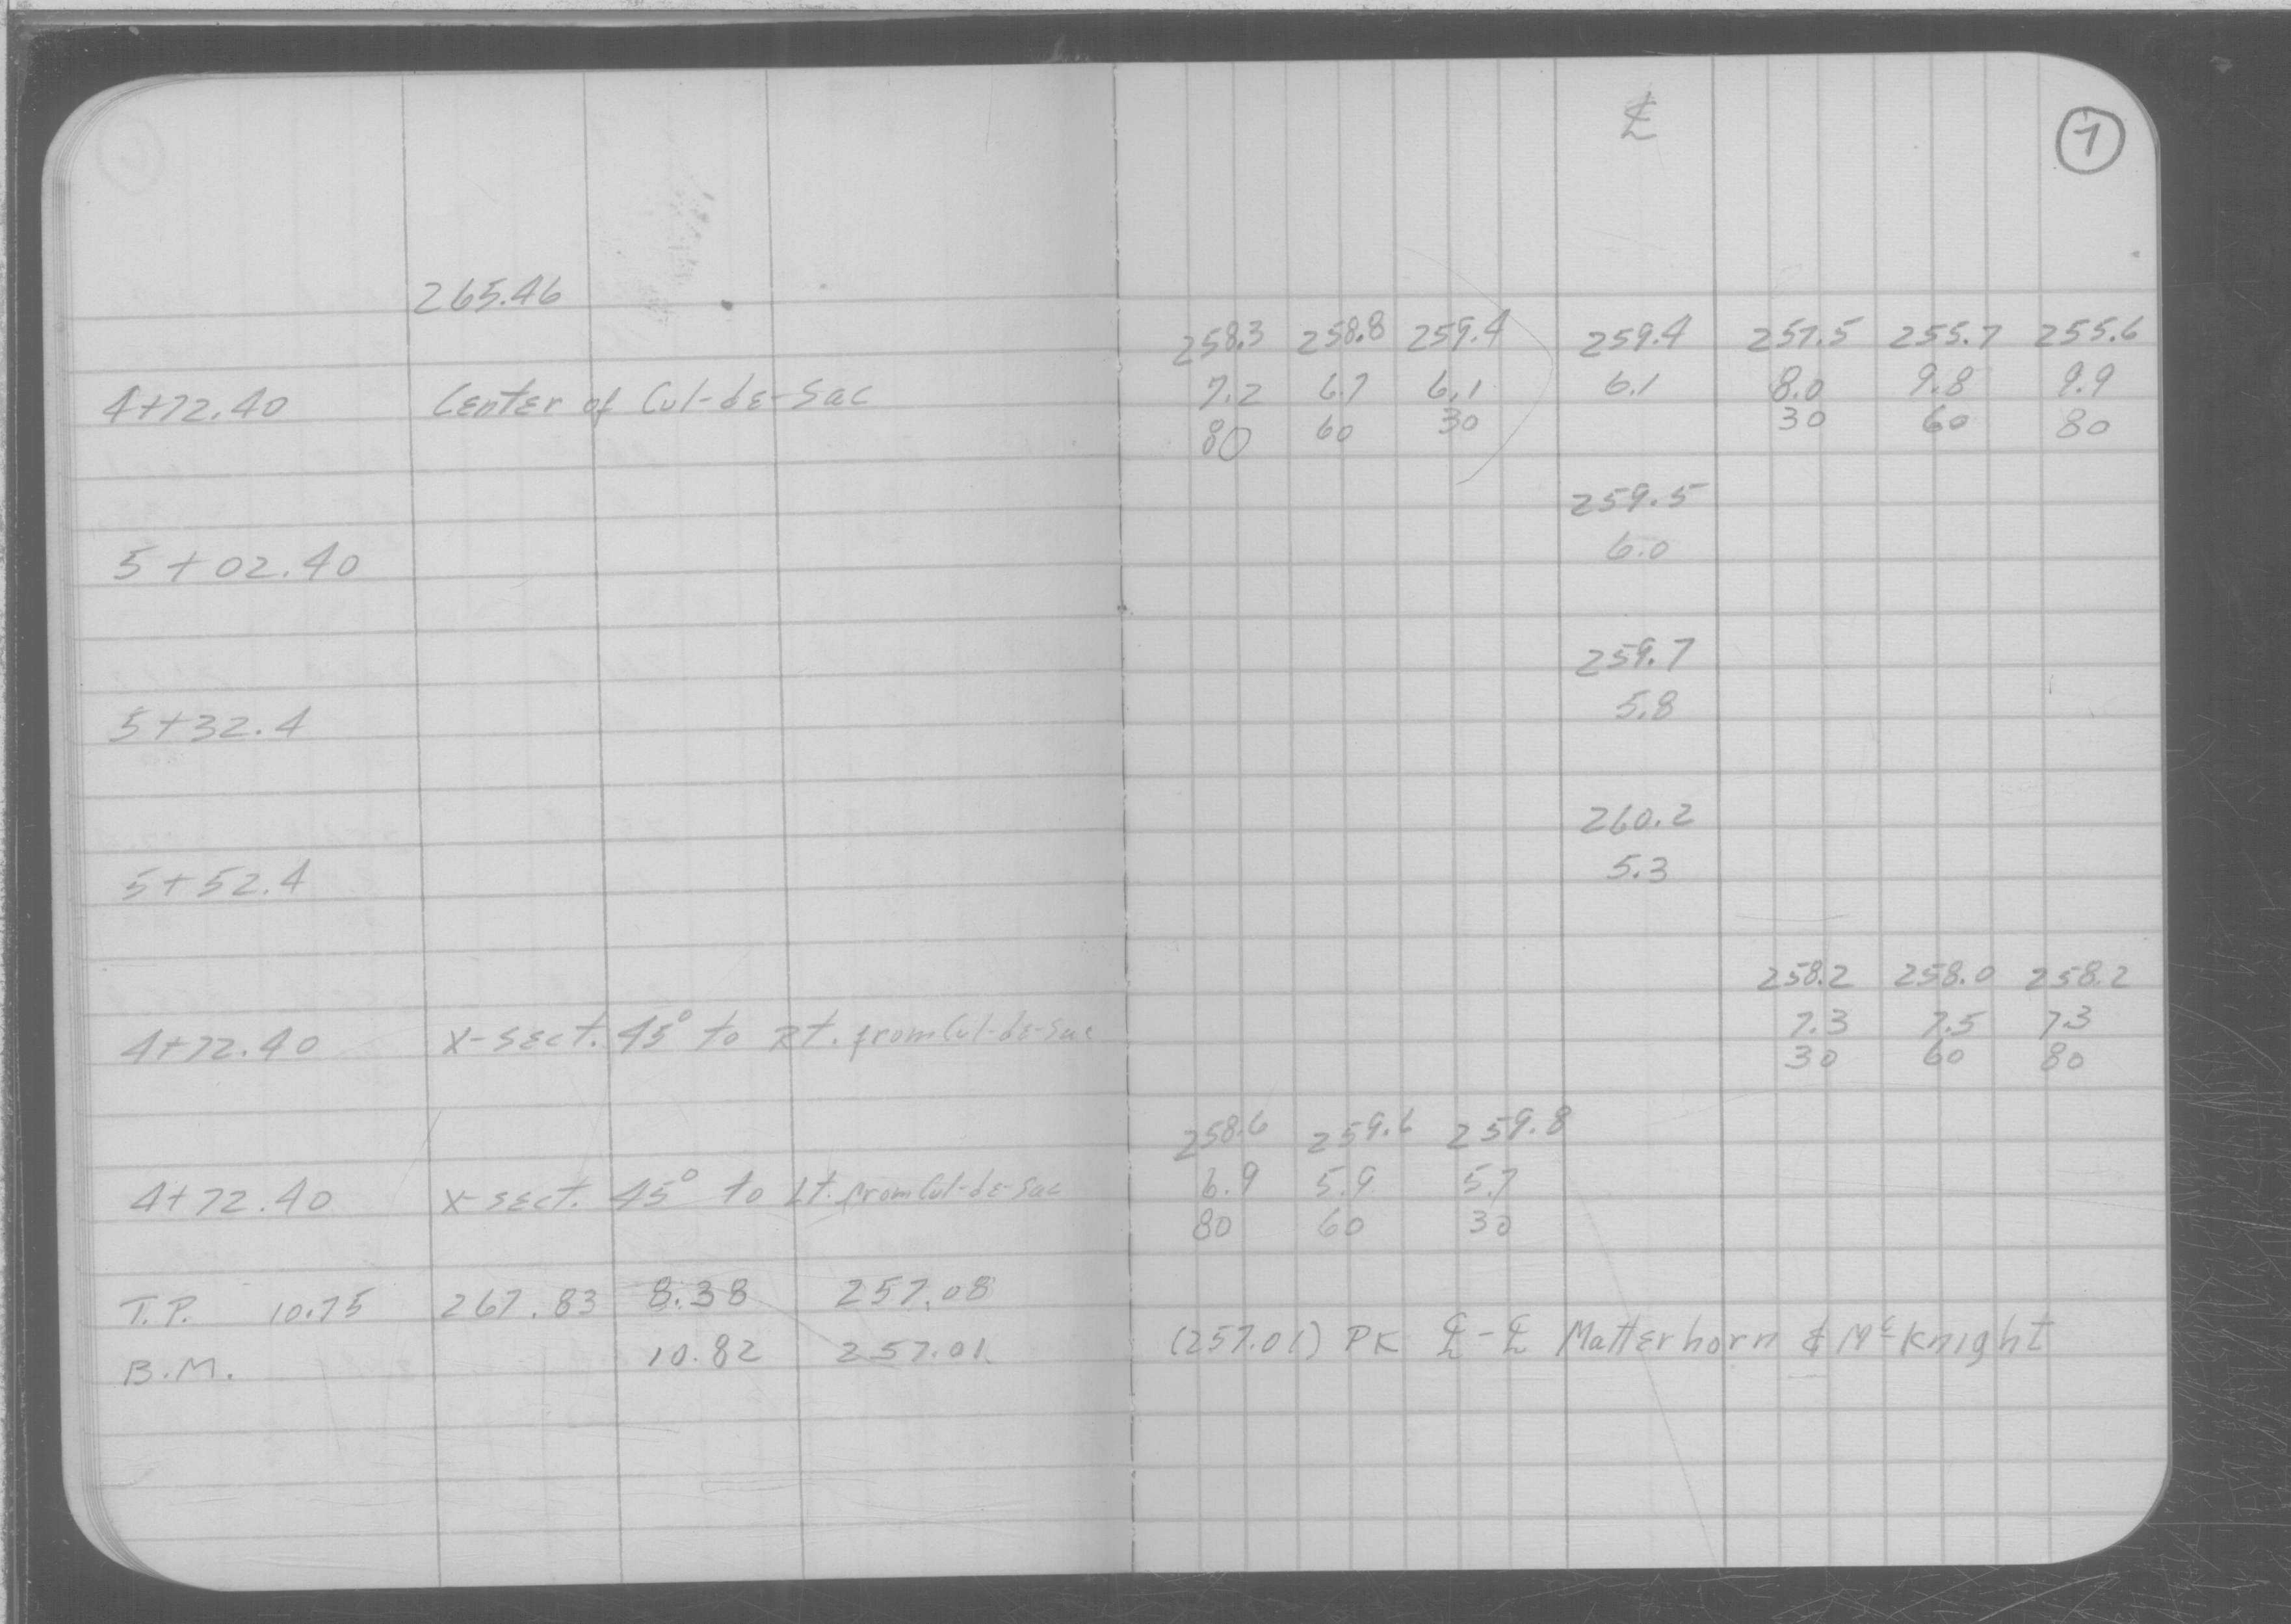 ℄ 7
265.46
258.3 258.8 259.4 259.4 257.5 255.7 255.6
4+72.40 Center of Cul-de-Sac 7.2 6.7 6.1 6.1 8.0 9.8 9.9
80 60 30 30 60 80
259.5
5+02.40 6.0
259.7
5+32.4 5.8
260.2
5+52.4 5.3
258.2 258.0 258.2
4+72.40 X-sect. 45° to Rt. from Cul-de-Sac 7.3 7.5 7.3
30 60 80
258.6 259.6 259.8
4+72.40 X-sect. 45° to Lt. from Cul-de-Sac 6.9 5.9 5.7
80 60 30
T.P. 10.75 267.83 8.38 257.08
B.M. 10.82 257.01 (257.01) PK ℄-℄ Matterhorn & McKnight